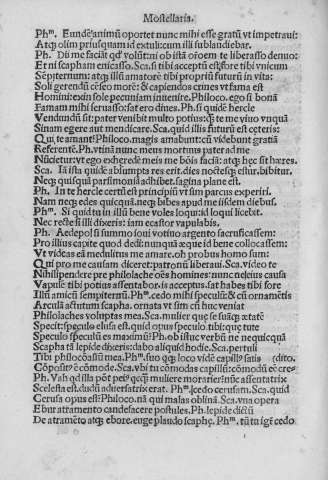 Mostellaria.
Phᵐ. Eundē animū oportet nunc mihi esse gratū vt impetraui:
Atq̄ olim priusquam id extuli: cum illi sublandiebar.
Ph. Dii me faciāt qď volūt: ni ob istā orōem te liberasso denuo:
Et ni scapham enicasso. Sca. si tibi acceptū est, fore tibi vnicum
Sempiternum: atq̄ illū amatorē tibi propriū futurū in vita:
Soli gerendū cēseo morē: & capiendos crines
Homini: exin sole pecuniam inuenire. Philoco. ego si bonā
Famam mihi seruasso: sat ero diues. Ph. si quidē hercle
Vendundū sit: pater venibit multo potius: q̄ te me viuo vnquā
Sinam egere aut mendicare. Sca. quid illis futurū est cęteris:
Qui te amant: Philoco. magis amabunt: cū videbunt gratiā
Referent. Ph. vtinā nunc meus mortuus pater ad me
Nūcietur: vt ego exheredē meis me bōis faciā: atq̄ hęc sit hæres.
Sca. Iā ista quidē absumpta res erit. dies noctesq̄ estur, bibitur.
Neq̄ quisquā parsimoniā adhibet. sagina plane est.
Ph. In te hercle certū est principiū vt sim parcus experiri.
Nam neq̄ edes quicquā. neq̄ bibes apud me iisdem diebus.
Phᵐ. Si quid tu in illū bene voles loqui: id loqui licebit.
Nec recte si illi dixeris: iam ecastor vapulabis.
Ph. Aedepol si summo ioui votiuo argento sacruficassem:
Pro illius capite quod dedi: nunquā æque id bene collocassem:
Vt videas eā medullitus me amare. oh probus homo sum:
Qui pro me causam diceret: patronū liberaui. Sca. video te
Nihilipendere prę philolache oēs homines: nunc ne eius causa
Vapulē tibi potius assentabor. is acceptus. sat habes tibi fore
Illū amicū sempiternū. Phᵐ. cedo mihi speculū: & cū ornamētis
Arculā actutum scapha. ornata vt sim cū huc veniat
Philolaches voluptas mea. Sca. mulier quę se suāq̄ ætatē
Specit: speculo eiusa est. quid opus speculo tibi: quę tute
Speculo speculū es maximū: Ph. ob istuc verbū ne nequicquā
Scapha tā lepide dixeris: dabo aliquid hodie. Sca. peculi
Tibi philocōasiū mea. Phᵐ. suo q̄q̄ loco vidē capillꝰ satis (dito.
Cōpositꝰ ē cōmode. Sca. vbi tu cōmodas capillū: cōmodū eē cre⸗
Ph. Vah qd illa pōt peiꝰ q̄cq̄ muliere morarier: nūc assentatrix
Scelesta est. dudū aduersatrix erat. Phᵐ. icedo cerusam. Sca. quid
Cerusa opus est: Philoco. nā qui malas oblinā. Sca. vna opera
Ebur atramento candefacere postules. Ph. lepide dictū
De atramēto atq̄ ebore. euge plaudo scaphę. Phᵐ. tū tu igē cedo